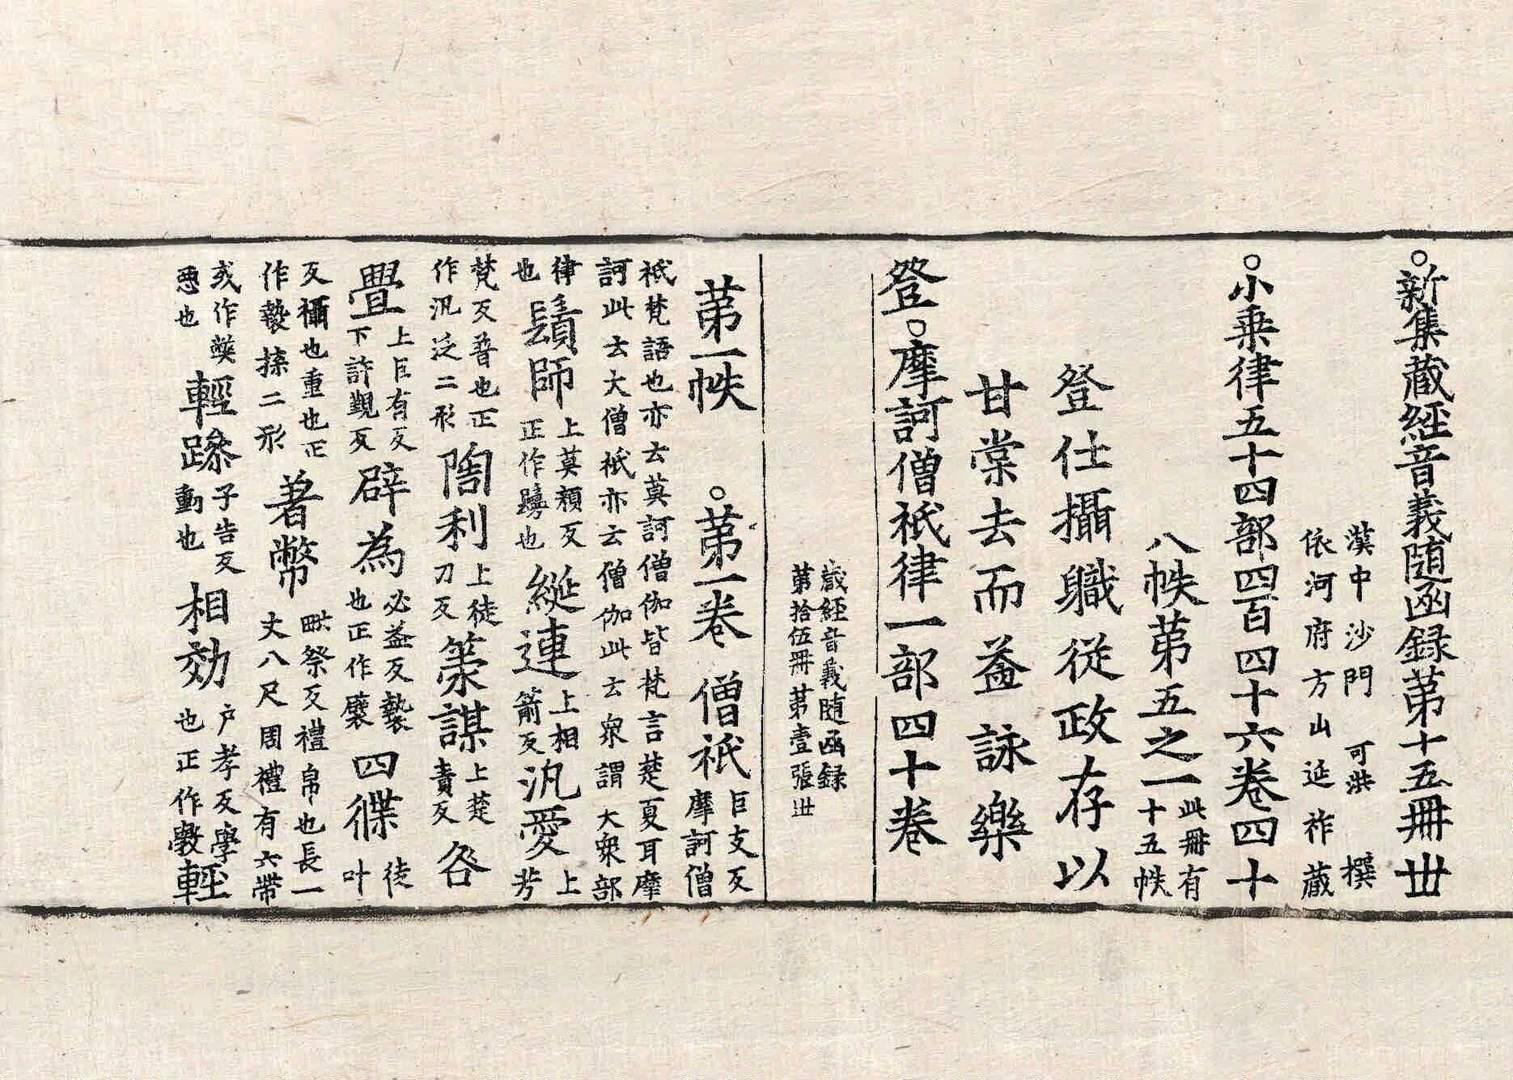 新集藏經音義隨函錄苐十五冊 丗
漢中沙門 可洪 撰
依河府方山延祚藏
小乘律五十四部四百四十六卷四十
八帙苐五之一
此冊有
十五帙
登仕攝職從政存以
甘棠去而益詠樂
登 摩訶僧祇律一部四十卷
藏經音義隨函録
苐拾伍冊苐壹張 丗
苐一帙 苐一卷 僧祇 巨支反
摩訶僧
祇梵語也亦云莫訶僧伽皆梵言楚夏耳摩
訶此云大僧祇亦云僧伽此云衆謂大衆部
律
也 鬚師 上莫頻反
正作躋也 綖連 上相
箭反 汎愛 上
芳
梵反普也正
作汎泛二形 陶利 上徒
刀反 筞謀 上楚
責反 咎
舋 上巨有反
下許覲反 辟為 必益反褺
也正作襞 四㣩 徒
叶
反襵也重也正
作褺揲二形 著幣 毗祭反禮帛也長一
丈八尺周禮有六幣
或作獘
惡也 輕躁 子告反
動也 相効 户孝反學
也正作斆 輕